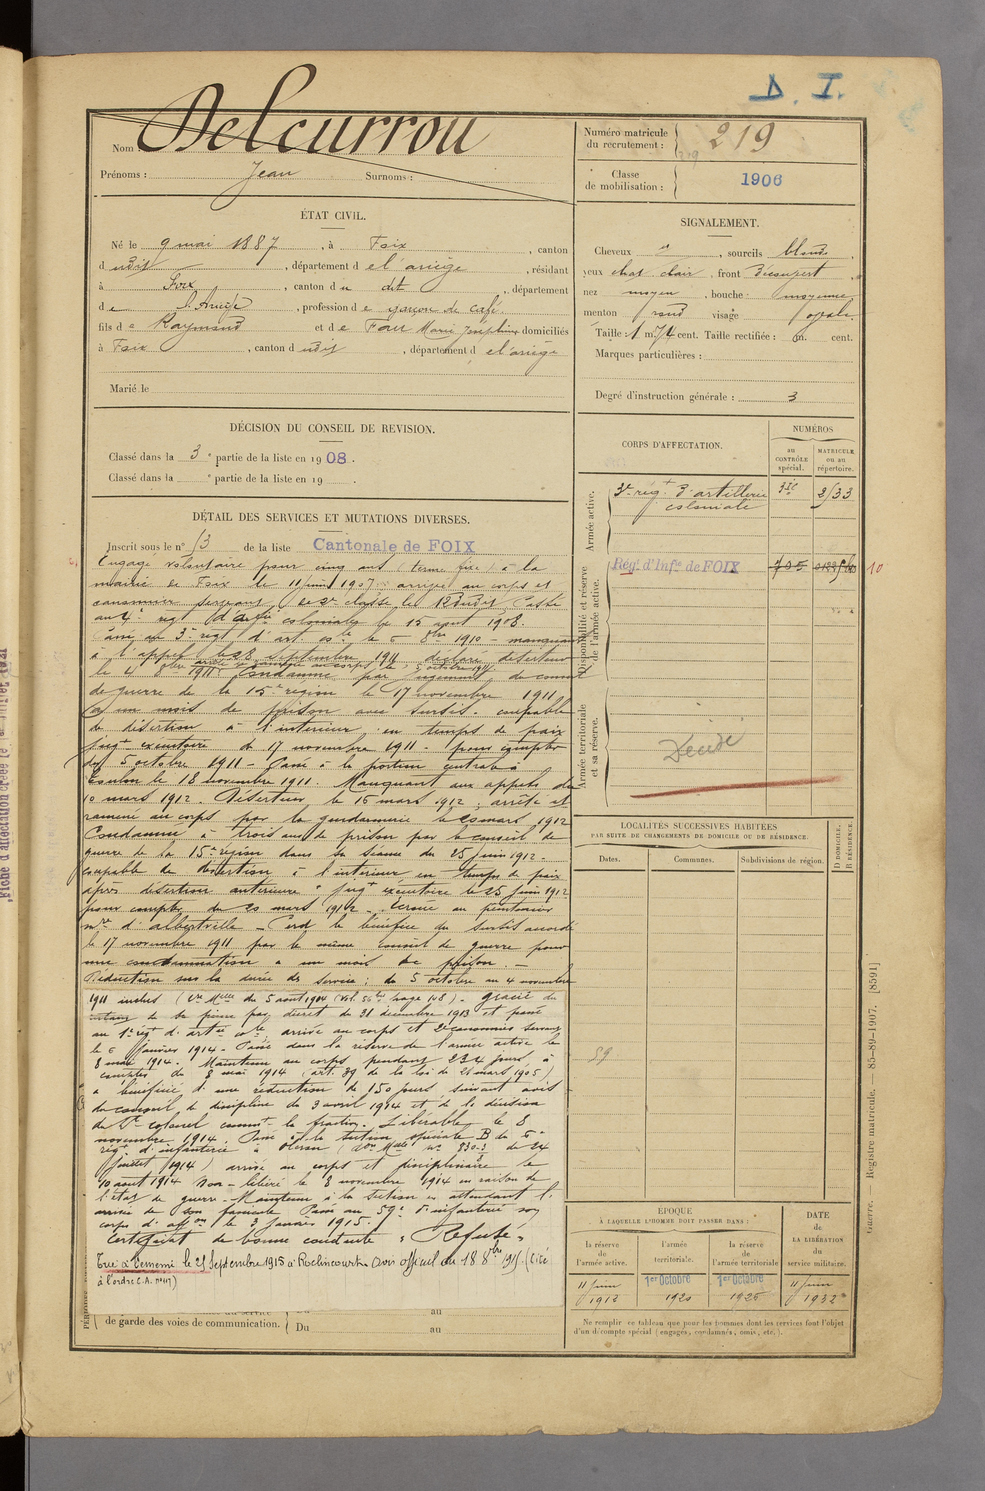 D. I.
Nom : Delcurrou
Prénoms : Jean Surnoms :
Numéro matricule du recrutement : 219
Classe de mobilisation : 1906
ÉTAT CIVIL.
Né le 9 mai 1887, à Foix, canton
dudit, département de l'ariège, résidant
à Foix, canton du dit, département
de l'Ariège, profession de garçon de café
fils de Raymond et de Faur Marie Joséphine domiciliés
à Foix, canton dudit, département de l'ariège
Marié le
SIGNALEMENT.
Cheveux d°, sourcils blonds
yeux chat clair, front découvert
nez moyen, bouche moyenne
menton rond visage ovale
Taille : 1 m. 74 cent. Taille rectifiée : m. cent.
Marques particulières :
Degré d'instruction générale : 3
DÉCISION DU CONSEIL DE REVISION.
Classé dans la 3e partie de la liste en 1908.
Classé dans la e partie de la liste en 19 .
DÉTAIL DES SERVICES ET MUTATIONS DIVERSES.
Inscrit sous le n° 13 de la liste Cantonale de FOIX
Engagé volontaire pour cinq ans (terme fixe) à la
mairie de Foix le 11 juin 1907 arrivé au corps et
canonnier servant de 2e classe le 12 dudit Passé
au 4e regt d'artie coloniale le 15 août 1908.
Passé au 3e regt d'art. cole le 6 8bre 1910 - manquant
à l'appel le 28 septembre 1911 déclaré déserteur
le 4 8bre 1911. Condamné par jugement du conseil
de guerre de la 15e région le 17 novembre 1911
à un mois de prison avec sursis. coupable
de désertion à l'intérieur en temps de paix
jugt exécutoire du 17 novembre 1911 - pour compter
du 5 octobre 1911 - Passé à la portion centrale à
Toulon le 18 novembre 1911. Manquant aux appels du
10 mars 1912. Déserteur le 16 mars 1912, arrêté et
ramené au corps par la gendarmerie le 20 mars 1912
Condamné à trois ans de prison par le conseil de
guerre de la 15e région dans sa séance du 25 juin 1912
coupable de désertion à l'intérieur en temps de paix
après désertion antérieure" jugt exécutoire le 25 juin 1912
pour compter du 20 mars 1912 - Écroué au pénitencier
mre d'albertville - Perd le bénéfice du sursis accordé
le 17 novembre 1911 par le même Conseil de guerre pour
une condamnation à un mois de prison. -
Déduction sur la durée du service : du 5 octobre au 4 novembre
1911 inclus (Cre Mlle du 5 août 1904 - gracié du
restant de sa peine par décret du 31 décembre 1913 et passé
au 1er régt d'artie cole, arrivé au corps et 2e canonnier servant
le 6 janvier 1914 - Passé dans la réserve de l'armée active le
8 mai 1914. Maintenu au corps pendant 234 jours à
compter du 8 mai 1914 (art. 39 de la loi du 21 mars 1905)
a bénéficié d'une réduction de 150 jours suivant avis
du conseil de discipline du 3 avril 1914 et de la décision
du Lt colonel commt la fraction. Libérable le 8
novembre 1914. Passé à la section spéciale B du
régt d'infanterie à Oloron de 24
Juillet 1914) arrivé au corps et disciplinaire le
10 août 1914 non-libéré le 8 novembre 1914 en raison de
l'état de guerre - Maintenu à la section en attendant l'
arrivée de son fascicule Passé au 59e d'infanterie son
corps d'affon le 3 janvier 1915.
Certificat de bonne conduite "Refusé"
Tué à l'ennemi le 25 Septembre 1915 à Roclincourt (Avis officiel du 18 8bre 1915. (Cité
à l'ordre C.A. n° 117)
de garde des voies de communication. Du au
Du au
CORPS D'AFFECTATION.
NUMÉROS
au CONTRÔLE spécial.
MATRICULE ou au répertoire.
Armée active.
3e régt d'artillerie coloniale 2533
Disponibilité et réserve de l'armée active.
Régt d'Infie de FOIX 705 10
Armée territoriale et sa réserve.
Décédé
LOCALITÉS SUCCESSIVES HABITÉES
PAR SUITE DE CHANGEMENTS DE DOMICILE OU DE RÉSIDENCE.
Dates. Communes. Subdivisions de région. D DOMICILE. R RÉSIDENCE.
59
ÉPOQUE
À LAQUELLE L'HOMME DOIT PASSER DANS :
la réserve de l'armée active.
l'armée territoriale.
la réserve de l'armée territoriale
DATE de LA LIBÉRATION du service militaire.
11 juin 1912
1er Octobre 1920
1er Octobre 1926
11 juin 1932
Ne remplir ce tableau que pour les hommes dont les services font l'objet
d'un décompte spécial (engagés, condamnés, omis, etc.).
Guerre. — Registre matricule. — 85-89-1907. [8591]